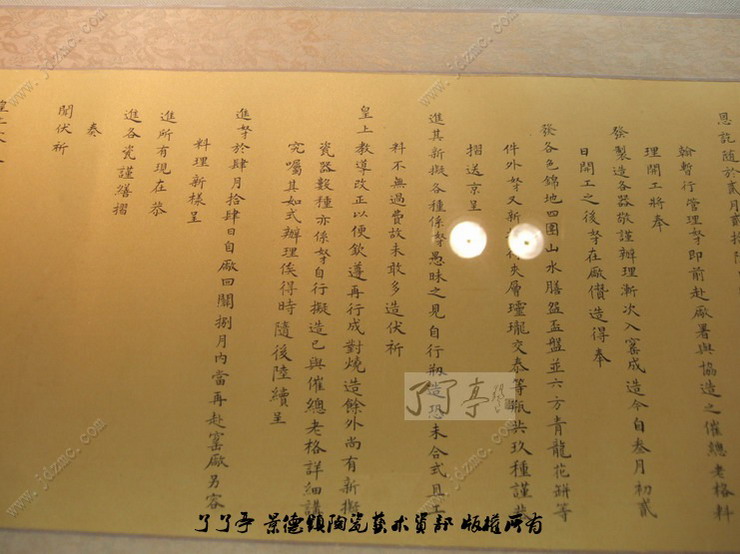 恩訖隨於貳月貳拾
翰暫行管理孥即前赴廠署與協造之催總老格料
理開工將奉
發製造各器敬謹辦理漸次入窰成造今自叁月初貳
日開工之後孥在廠儹造得奉
發各色錦地四團山水膳盌盃盤並六方青龍花缾等
件外孥又新 夾層玲瓏交泰等瓶共玖種謹恭
摺送京呈
進其新擬各種係孥愚昧之見自行 造恐未合式且工
料不無過費故未敢多造伏祈
皇上教導改正以便欽遵再行成對燒造餘外尚有新擬
瓷器數種亦係孥自行擬造已與催總老格詳細講
究囑其如式辦理俟得時隨後陸續呈
進孥於肆月拾肆日自廠回關捌月內當再赴窰廠另容
料理新樣呈
進所有現在恭
進各瓷謹繕摺
奏
聞伏祈
皇上
了了亭
了了亭 景德鎮陶瓷藝术資部 版權所有
www.jdzmc.com
www.jdzmc.com
www.jdzmc.com
www.jdzmc.com